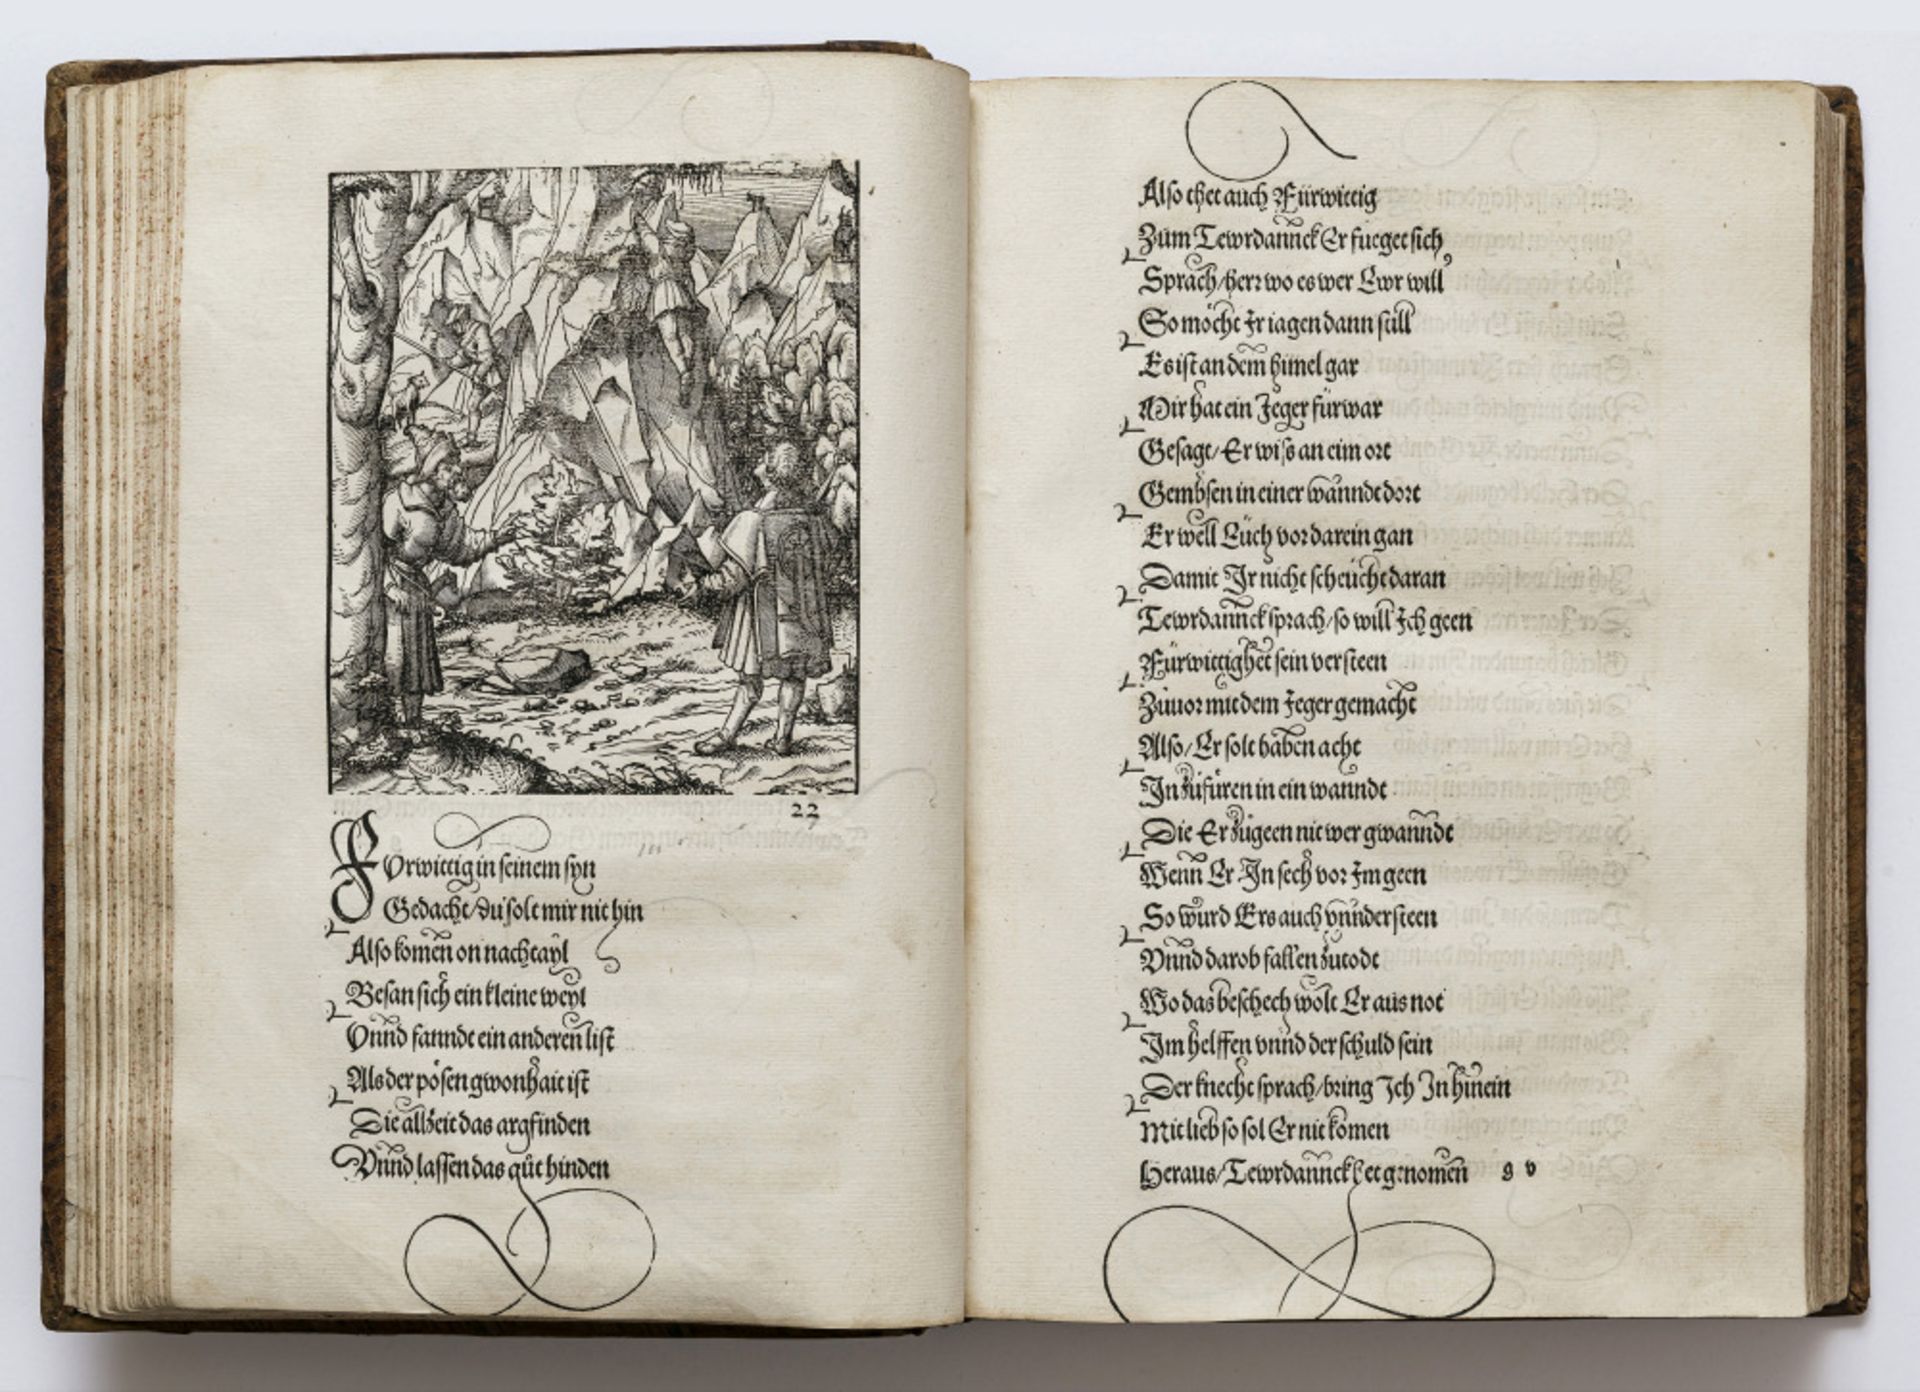 22
FUrwittig in seinem syn
Gedacht/du solt mir nit hin
Also komen on nachtayl
Besan sich ein kleine weyl
Vnnd fanndt ein anderen list
Als der pösen gwonhait ist
Die allzeit das arg finden
Vnnd lassen das gůt hinden
Also thet auch Fürwittig
Zům Tewrdannck Er fueget sich
Sprach/herr wo es wer Ewr will
So möcht Ir iagen dann still
Es ist an dem himel gar
Mir hat ein Jeger fürwar
Gesagt/Er wiss an eim ort
Gembsen in einer wanndt dort
Er well Eüch vor darein gan
Damit Ir nicht scheücht daran
Tewrdannck sprach/so will Ich geen
Fürwittig het sein versteen
Zůuor mit dem Jeger gemacht
Also/Er solt haben acht
In zůfüren in ein wanndt
Die Er zůgeen nit wer gwanndt
Wenn Er In sech vor Im geen
So würd Ers auch vnndersteen
Vnnd darob fallen zutodt
Wo das beschech wölt Er aus not
Im helffen vnnd der schuld sein
Der knecht sprach/bring Ich In hinein
Mit lieb so sol Er nit komen
Heraus/Tewrdannck het genomen g v